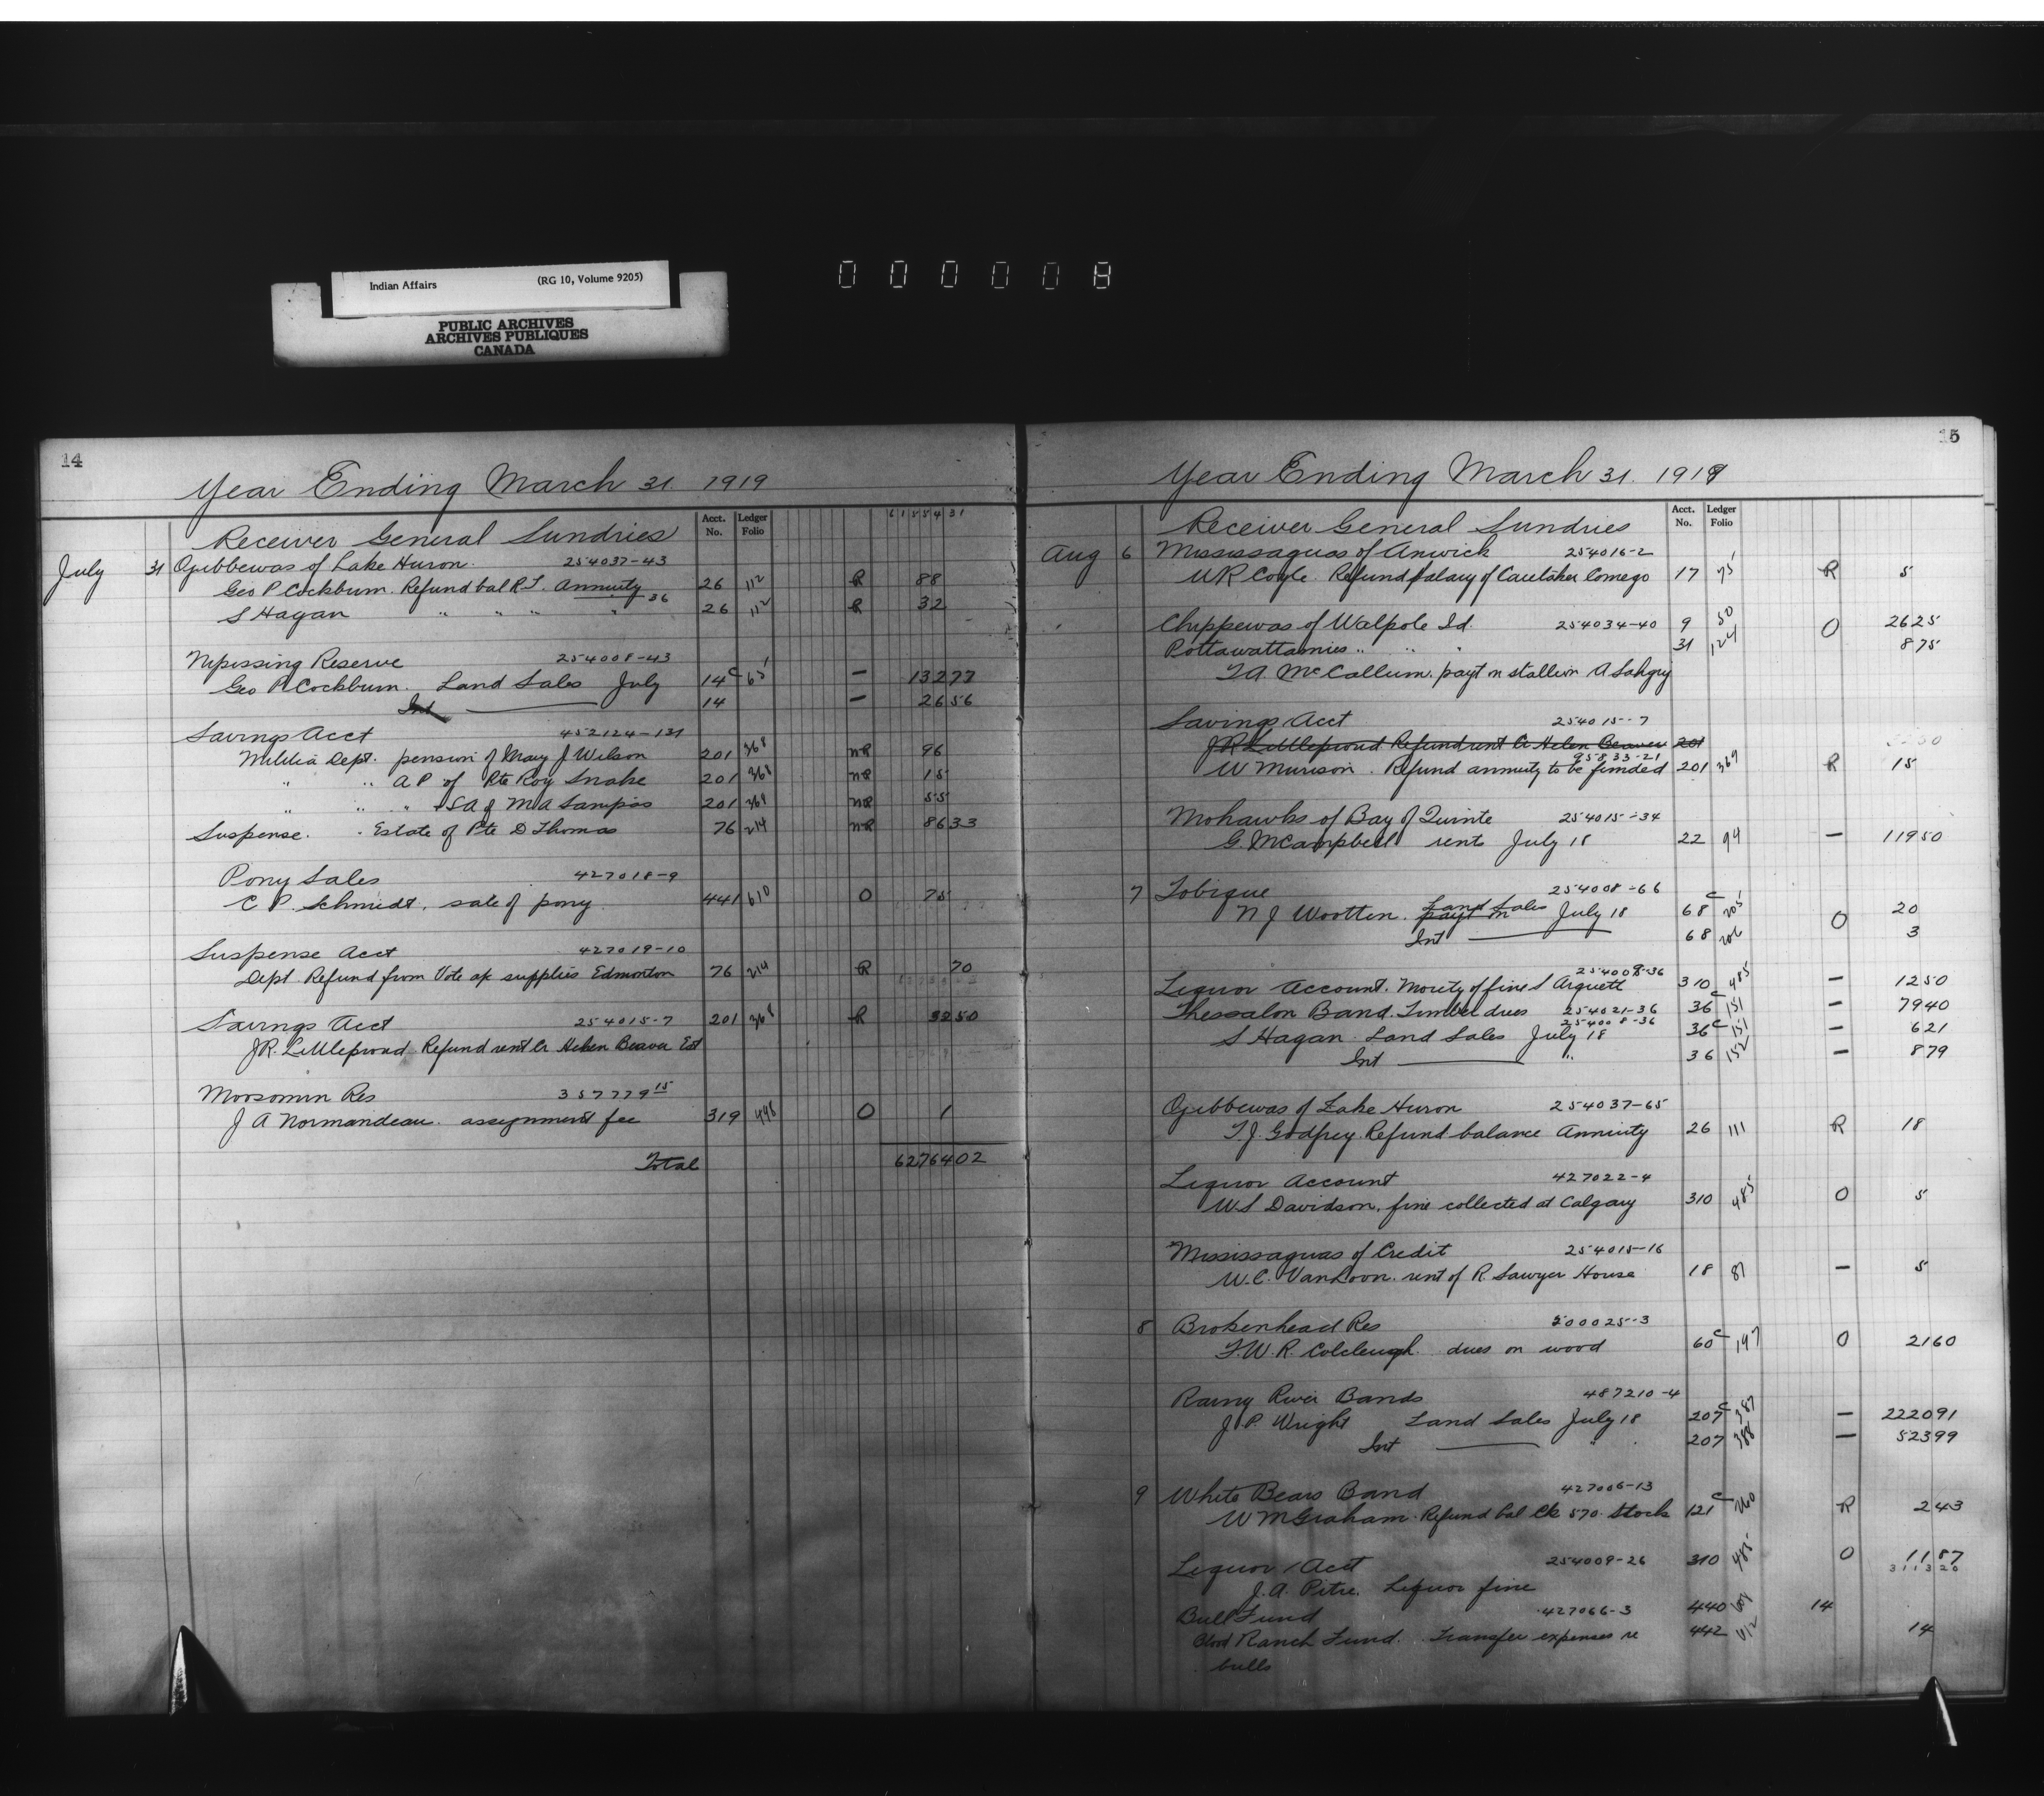 Indian Affairs (RG 10, Volume 9205)
PUBLIC ARCHIVES
ARCHIVES PUBLIQUES
CANADA
000008
14
Year Ending March 31 1919
Acct. No. Ledger Folio 61554 31
Receiver General Sundries
July 31 Ojibbewas of Lake Huron. 254037-43
Geo P Cockburn. Refund bal R.T. Annuity 26 112 R 88
36
S Hagan " " " " 26 112 R 32
Nipissing Reserve 254008-43
Geo P Cockburn. Land Sales July 14c 65 — 132 77
Int 14 — 26 56
Savings Acct 452124-131
Militia Dept. pension of Mary J Wilson 201 368 NR 96
" " A P of Pte Roy Snake 201 368 NR 15
" " " + SA of M A Sampas 201 369 NR 55
Suspense. Estate of Pte D Thomas 76 214 NR 86 33
Pony Sales 427018-9
C P. Schmidt. sale of pony 441 610 O 75
Suspense Acct 427019-10
Dept Refund from Vote ap supplies Edmonton 76 214 R 70
Savings Acct 254015-7 201 368 R 32 50
J.R. Littleproud Refund rent Cr Helen Beaver Est
Moosomin Res 357779 15
J A Normandeau. assignment fee 319 448 O 1
Total 62764 02
15
Year Ending March 31. 1919
Acct. No. Ledger Folio
Receiver General Sundries
Aug 6 Mississaguas of Alnwick 254016-2
W R Coyle. Refund salary of Caretaker Comego 17 75 R 5
Chippewas of Walpole Id. 254034-40 9 50 O 26 25
Pottawattamies " " " 31 124 8 75
T A McCallum. payt on stallion A Sahgij
Savings Acct 254015-7
J R Littleproud Refund rent Cr Helen Beaver 201
95833-21
W Murison. Refund annuity to be funded 201 369 R 15
Mohawks of Bay of Quinte 254015-34
G. M Campbell rents July 18 22 94 — 119 50
7 Tobique 254008-66
N J Wootten. payt on Land Sales July 18 68c 205 O 20
Int 68 206 3
254009-36
Liquor Account. Moiety of fine S Arquett 310 485 — 12 50
Thessalon Band. Timber dues 254021-36 36c 151 — 79 40
254008-36
S Hagan Land Sales July 18 36c 151 — 6 21
Int " 36 152 — 8 79
Ojibbewas of Lake Huron 254037-65
T. J. Godfrey. Refund balance Annuity 26 111 R 18
Liquor Account 427022-4
W. S Davidson. fine collected at Calgary 310 485 O 5
Mississaguas of Credit 254015-16
W. C. VanLoon. rent of R. Sawyer House 18 87 — 5
8 Brokenhead Res 200025-3
F. W. R. Colcleugh. dues on wood 60c 197 O 21 60
Rainy River Bands 487210-4
J. P. Wright Land Sales July 18 207c 387 — 2220 91
Int " 207 388 — 523 99
9 White Bears Band 427006-13
W M Graham. Refund bal Ck 570 Stock 121c 260 R 2 43
Liquor Acct 254009-26 310 485 O 11 87
3113 20
J. A. Pitre. Liquor fine
Bull Fund 427066-3 440 609 14
Blood Ranch Fund. Transfer expenses re 442 612 14
bulls